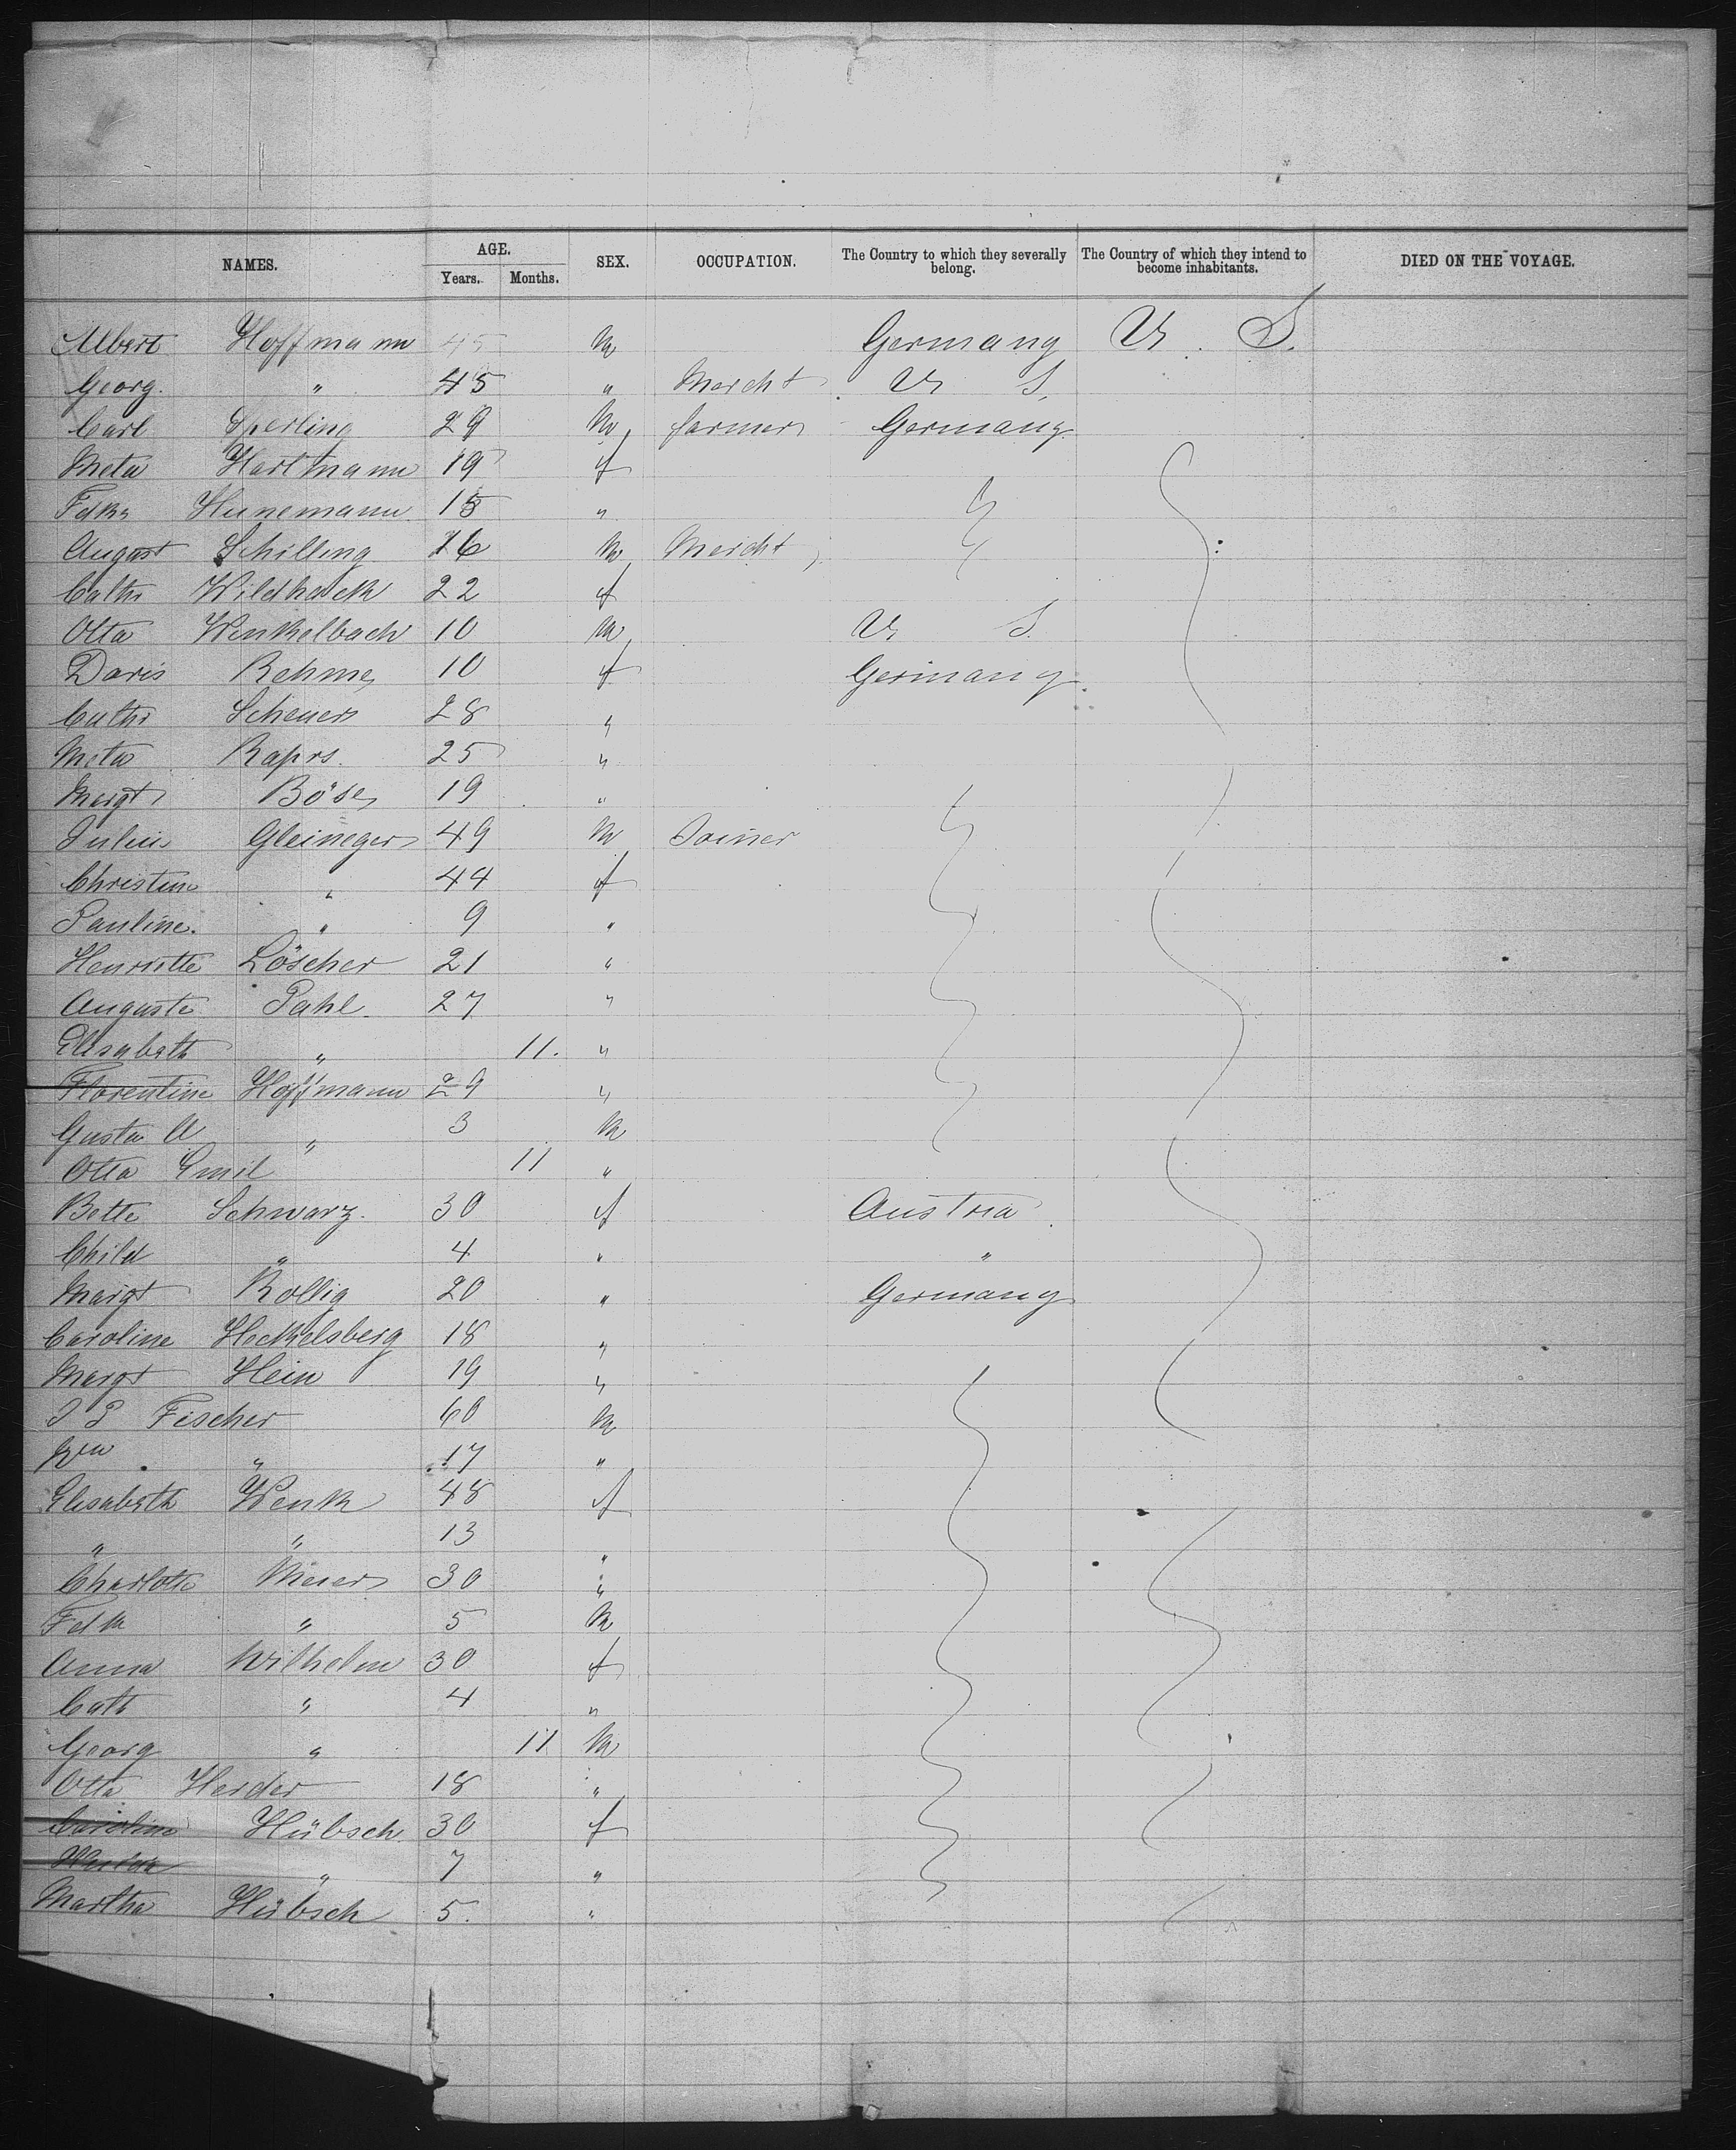 NAMES. AGE. Years. Months. SEX. OCCUPATION. The Country to which they severally belong. The Country of which they intend to become inhabitants. DIED ON THE VOYAGE.
Albert Hoffmann 45 M Germany U. S.
Georg. " 45 " Mercht U S.
Carl Sperling 29 M farmer Germany
Meta Hartmann 19 f
Hünemann 15 "
August Schilling 26 M Mercht
Cath 22 f
Otto Winkelbach 10 M U S.
Doris Rehme 10 f Germany
Cath Scheuer 28 "
Meta 25 "
Margt Böse 19 "
Gleineger 49 M Joiner
Christine " 44 f
Pauline. " 9 "
Henriette Löscher 21 "
Auguste Pahl 27 "
Elisabeth " 11. "
Florentine Hoffmann 29 "
Gustav A " 3 M
Otto Emil 11 "
Bette Schwarz. 30 f Austria
Child " 4 " "
Margt Rollig 20 " Germany
Caroline Heckelsberg 18 "
Margt Hein 19 "
Fischer 60 M
Wm " 17 "
Elisabeth Wenk 48 f
" " 13 "
Charlotte Meier 30 "
" 5 M
Anna Wilhelm 30 f
Cath " 4 "
Georg " 11 M
Otto Herder 18 "
Caroline Hübsch 30 f
" 7 "
Martha Hübsch 5. "